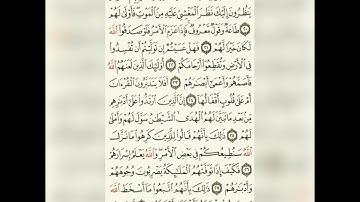 يَنظُرُونَ إِلَيْكَ نَظَرَ ٱلْمَغْشِيِّ عَلَيْهِ مِنَ ٱلْمَوْتِ فَأَوْلَىٰ لَهُمْ
٢٠ طَاعَةٌ وَقَوْلٌ مَّعْرُوفٌ فَإِذَا عَزَمَ ٱلْأَمْرُ فَلَوْ صَدَقُوا۟ ٱللَّهَ
لَكَانَ خَيْرًا لَّهُمْ ٢١ فَهَلْ عَسَيْتُمْ إِن تَوَلَّيْتُمْ أَن تُفْسِدُوا۟
فِى ٱلْأَرْضِ وَتُقَطِّعُوٓا۟ أَرْحَامَكُمْ ٢٢ أُو۟لَٰٓئِكَ ٱلَّذِينَ لَعَنَهُمُ ٱللَّهُ
فَأَصَمَّهُمْ وَأَعْمَىٰٓ أَبْصَٰرَهُمْ ٢٣ أَفَلَا يَتَدَبَّرُونَ ٱلْقُرْءَانَ
أَمْ عَلَىٰ قُلُوبٍ أَقْفَالُهَآ ٢٤ إِنَّ ٱلَّذِينَ ٱرْتَدُّوا۟ عَلَىٰٓ أَدْبَٰرِهِم
مِّنۢ بَعْدِ مَا تَبَيَّنَ لَهُمُ ٱلْهُدَى ٱلشَّيْطَٰنُ سَوَّلَ لَهُمْ وَأَمْلَىٰ
لَهُمْ ٢٥ ذَٰلِكَ بِأَنَّهُمْ قَالُوا۟ لِلَّذِينَ كَرِهُوا۟ مَا نَزَّلَ
ٱللَّهُ سَنُطِيعُكُمْ فِى بَعْضِ ٱلْأَمْرِ وَٱللَّهُ يَعْلَمُ إِسْرَارَهُمْ
٢٦ فَكَيْفَ إِذَا تَوَفَّتْهُمُ ٱلْمَلَٰٓئِكَةُ يَضْرِبُونَ وُجُوهَهُمْ
وَأَدْبَٰرَهُمْ ٢٧ ذَٰلِكَ بِأَنَّهُمُ ٱتَّبَعُوا۟ مَآ أَسْخَطَ ٱللَّهَ